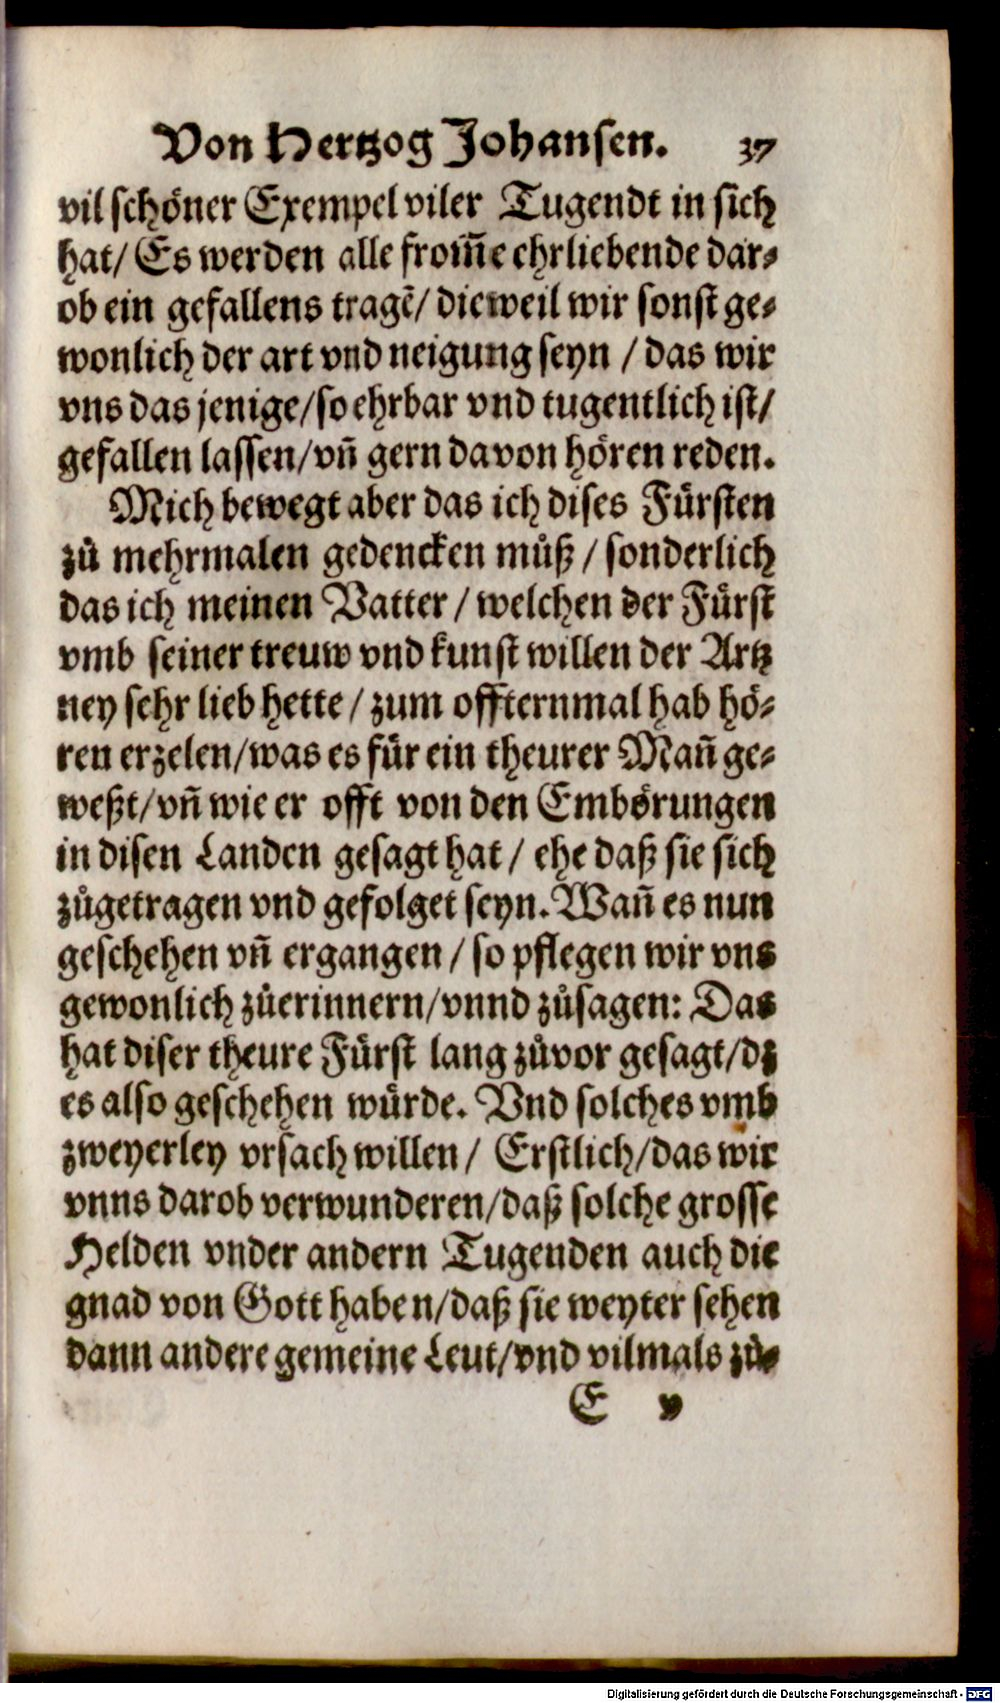 Von Hertzog Johansen. 37
vil schöner Exempel viler Tugendt in sich
hat/ Es werden alle from̃e ehrliebende dar⸗
ob ein gefallens tragē/ dieweil wir sonst ge⸗
wonlich der art vnd neigung seyn / das wir
vns das jenige/so ehrbar vnd tugentlich ist/
gefallen lassen/vñ gern davon hören reden.
Mich bewegt aber das ich dises Fürsten
zů mehrmalen gedencken můß / sonderlich
das ich meinen Vatter / welchen der Fürst
vmb seiner treuw vnd kunst willen der Artz
ney sehr lieb hette / zum offternmal hab hö⸗
ren erzelen/was es für ein theurer Mañ ge⸗
weßt/vñ wie er offt von den Embörungen
in disen Landen gesagt hat / ehe daß sie sich
zůgetragen vnd gefolget seyn. Wañ es nun
geschehen vñ ergangen / so pflegen wir vns
gewonlich zůerinnern/vnnd zůsagen: Das
hat diser theure Fürst lang zůvor gesagt/dz
es also geschehen würde. Vnd solches vmb
zweyerley vrsach willen / Erstlich/das wir
vnns darob verwunderen/daß solche grosse
Helden vnder andern Tugenden auch die
gnad von Gott haben/daß sie weyter sehen
dann andere gemeine Leut/vnd vilmals zů⸗
E v
Digitalisierung gefördert durch die Deutsche Forschungsgemeinschaft - DFG